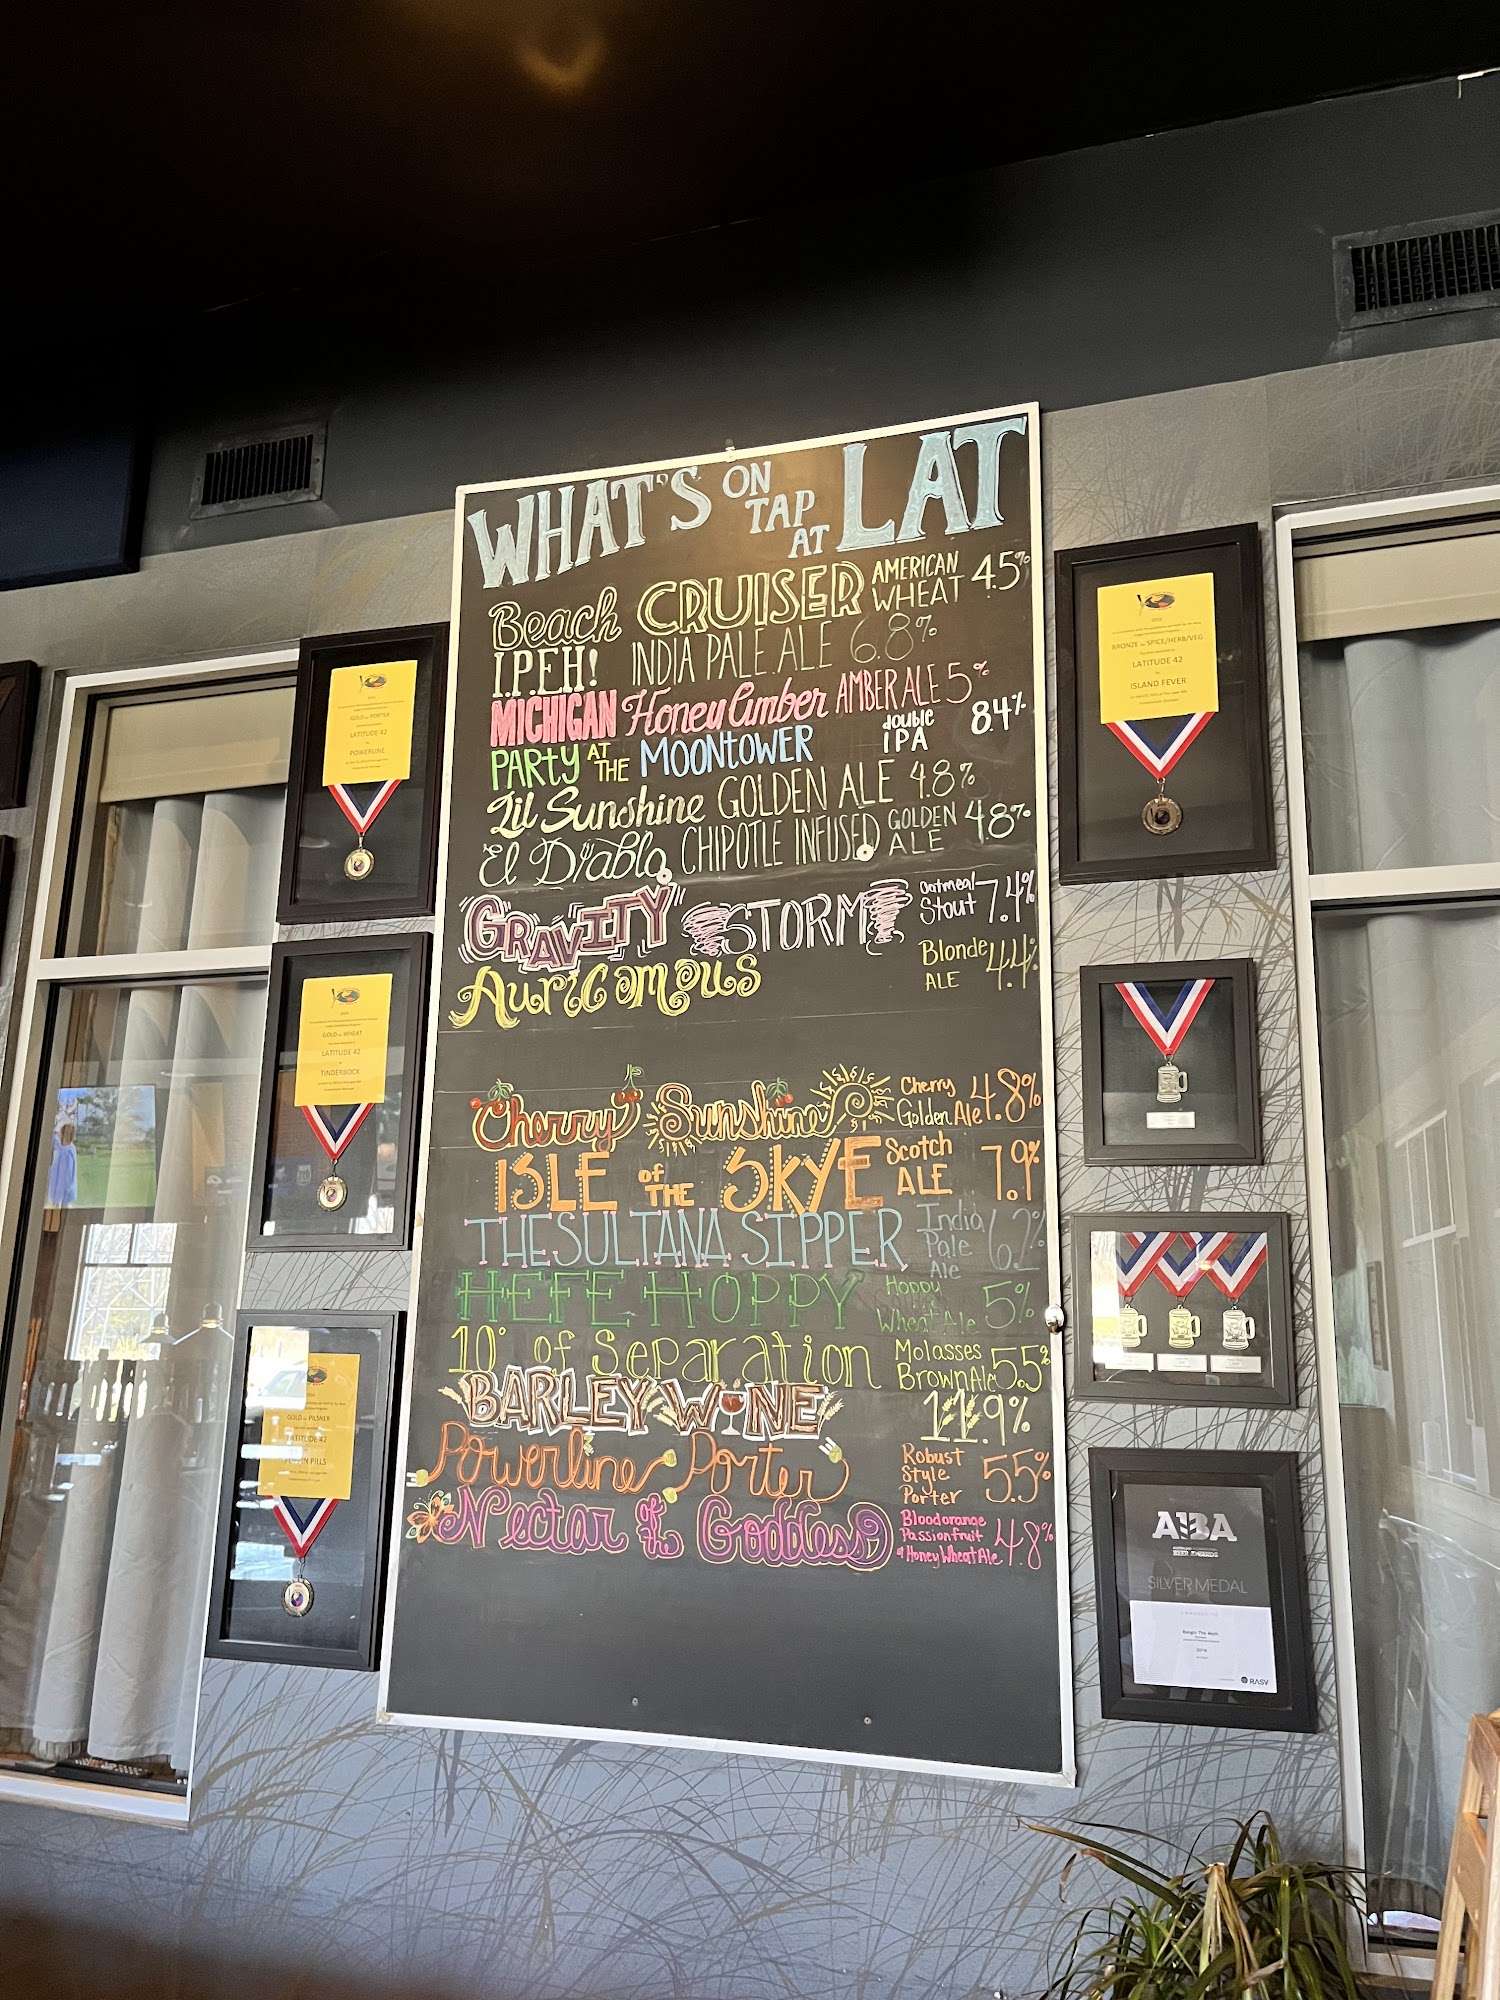 WHAT'S ON TAP AT LAT
Beach CRUISER AMERICAN WHEAT 4.5%
I.P.EH! INDIA PALE ALE 6.8%
MICHIGAN Honey Amber AMBER ALE 5%
PARTY AT THE MOONTOWER double IPA 8.4%
Lil Sunshine GOLDEN ALE 4.8%
El Diablo CHIPOTLE INFUSED GOLDEN ALE 4.8%
GRAVITY STORM Oatmeal Stout 7.4%
AuriComous Blonde ALE 4.4%
Cherry Sunshine Cherry Golden Ale 4.8%
ISLE of THE SKYE Scotch ALE 7.9%
THE SULTANA SIPPER India Pale Ale 6.2%
HEFE HOPPY Hoppy Wheat Ale 5%
10° of Separation Molasses Brown Ale 5.5%
BARLEY WINE 11.9%
Powerline Porter Robust Style Porter 5.5%
Nectar of the Goddess Bloodorange Passionfruit & Honey Wheat Ale 4.8%
GOLD for PORTER
LATITUDE 42
POWERLINE
GOLD for WHEAT
LATITUDE 42
TINDERBOCK
GOLD for PILSNER
LATITUDE 42
PILLS
BRONZE for SPICE/HERB/VEG
LATITUDE 42
for
ISLAND FEVER
ABA
BEER AWARDS
SILVER MEDAL
2014
RASV